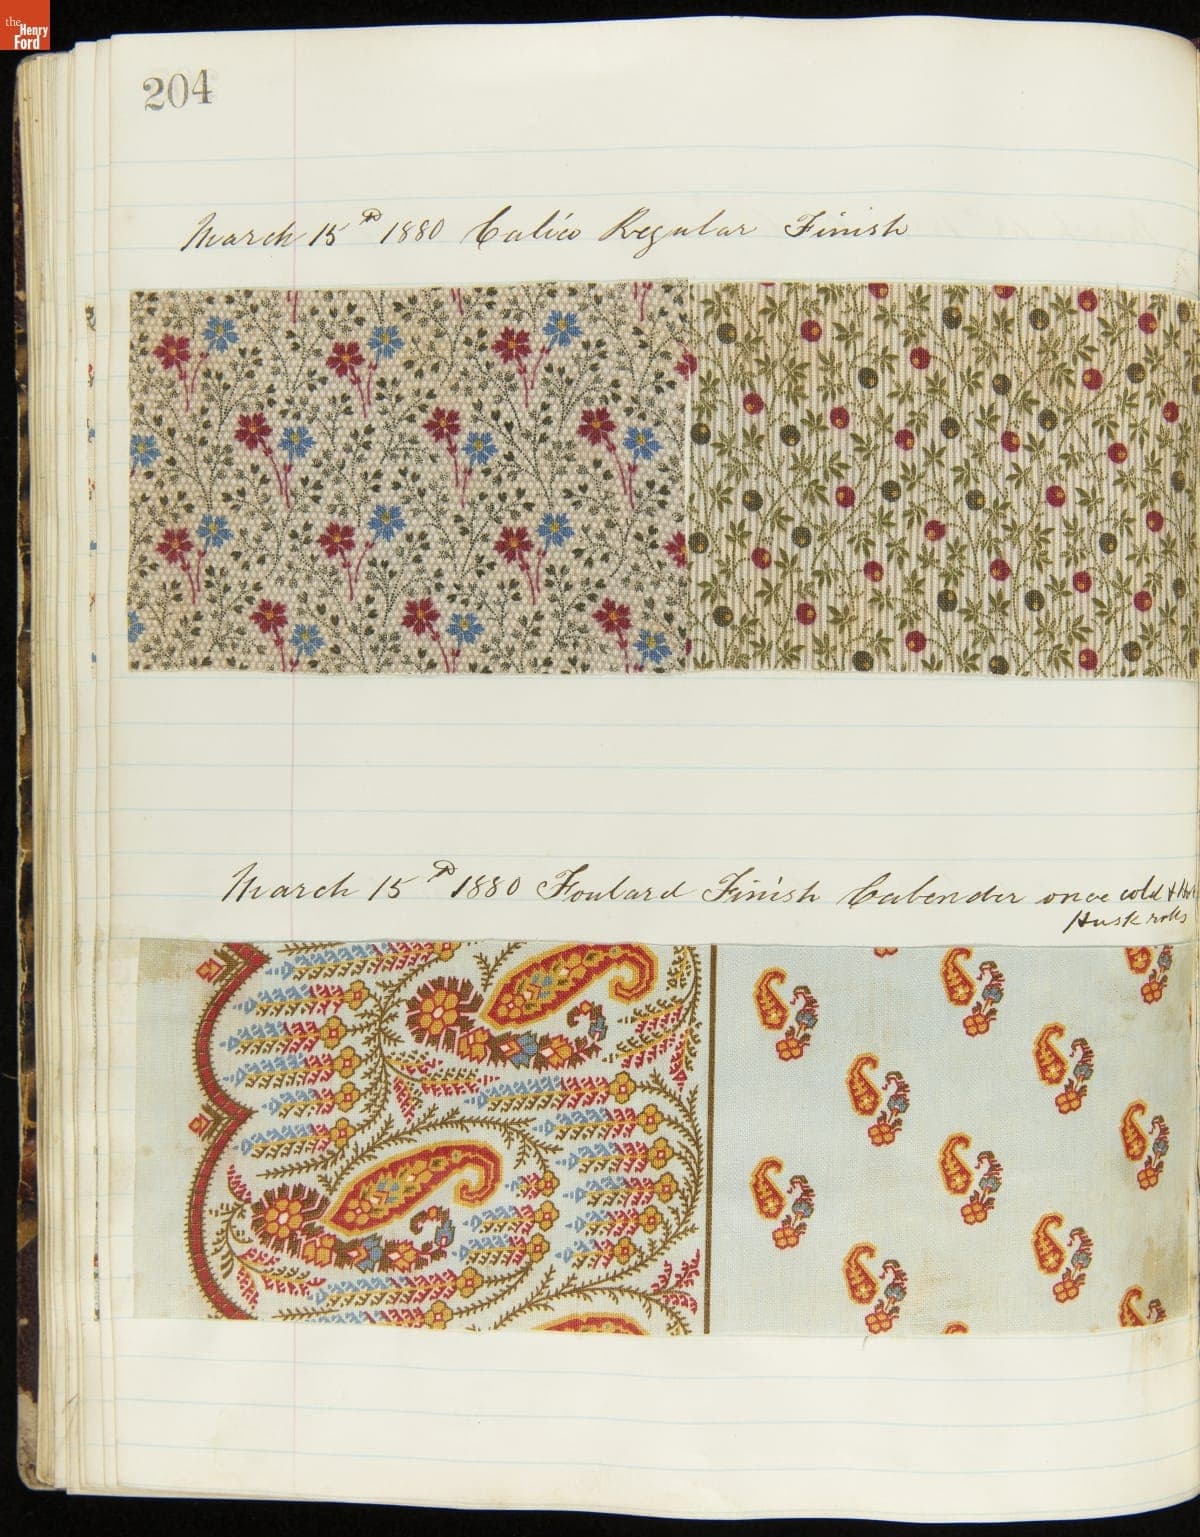 the
Henry
Ford
204
March 15th 1880 Calico Regular Finish
March 15th 1880 Foulard Finish Calender once cold & Hot
Husk rolls